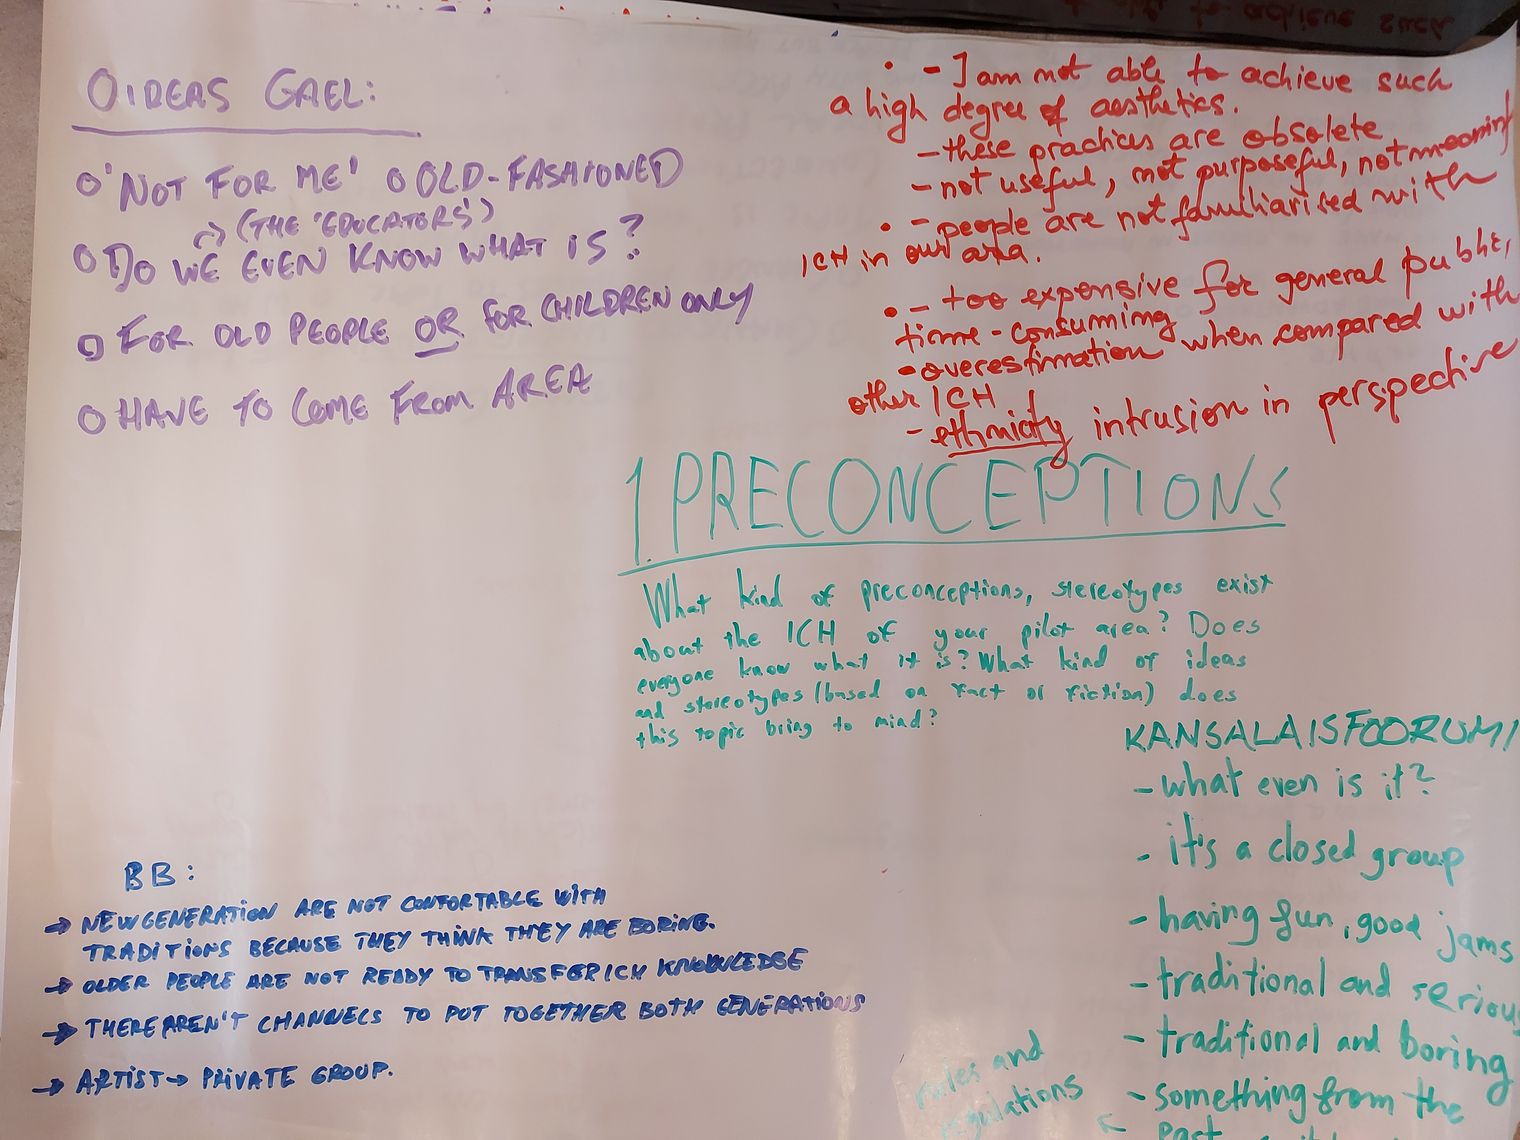 OIDEAS GAEL:
O 'NOT FOR ME' O OLD-FASHIONED
(THE 'EDUCATORS')
O DO WE EVEN KNOW WHAT IS?
O FOR OLD PEOPLE OR FOR CHILDREN ONLY
O HAVE TO COME FROM AREA
• - I am not able to achieve such
a high degree of aesthetics.
- these practices are obsolete
- not useful, not purposeful, not meaningf
• - people are not familiarised with
ICH in our area.
• - too expensive for general public,
time-consuming
- overestimation when compared with
other ICH
- ethnicity intrusion in perspective
1. PRECONCEPTIONS
What kind of preconceptions, stereotypes exist
about the ICH of your pilot area? Does
everyone know what it is? What kind of ideas
and stereotypes (based on fact or fiction) does
this topic bring to mind?
KANSALAISFOORUMI
- what even is it?
- it's a closed group
- having fun, good jams
- traditional and serious
- traditional and boring
- something from the
past
rules and
regulations ←
BB:
→ NEW GENERATION ARE NOT CONFORTABLE WITH
TRADITIONS BECAUSE THEY THINK THEY ARE BORING.
→ OLDER PEOPLE ARE NOT READY TO TRANSFER ICH KNOWLEDGE
→ THERE AREN'T CHANNELS TO PUT TOGETHER BOTH GENERATIONS
→ ARTIST → PRIVATE GROUP.